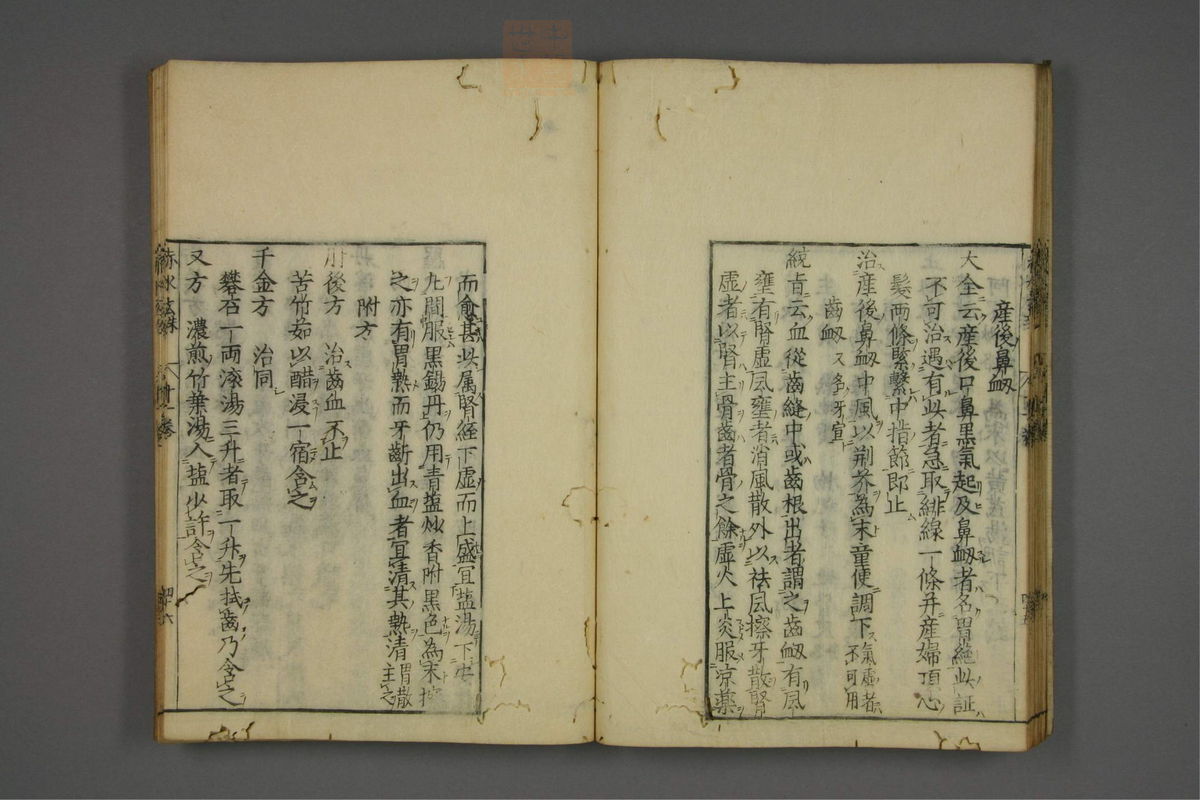 産後鼻衂
大全云産後口鼻黒氣起及鼻衂者名胃絶此証
不可治遇有此者急取緋線一條并産婦頂心
髪両條緊繫中指節即止
治産後鼻衂中風以荆芥為末童便調下氣虚者不可用
齒衂又名牙宣
統旨云血從齒縫中或齒根出者謂之齒衂有風
壅有腎虚風壅者消風散外以袪風擦牙散腎
虚者以腎主骨齒者骨之餘虚火上炎服凉藥
而愈甚此属腎経下虚而上盛宜塩湯下安
九間服黒錫丹仍用青塩炒香附黒色為末擦
之亦有胃熱而牙齗出血者宜清其熱清胃散主之
附方
肘後方 治齒血不止
苦竹茹以醋浸一宿含之
千金方 治同
礬石一両滚湯三升煮取一升先拭齒乃含之
又方 濃煎竹葉湯入塩少許含之
赤水玄珠